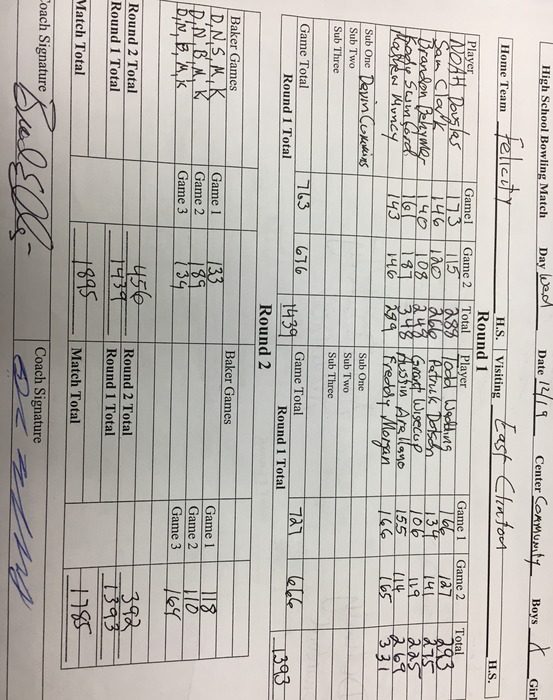 High School Bowling Match Day Wed Date 12/19 Center Community Boys X Girl
Home Team Felicity H.S. Visiting East Clinton H.S.
Round 1
Player Game1 Game 2 Total Player Game 1 Game 2 Total
NOAH Douglas 173 115 288 Todd Wedding 166 127 293
Sam Clark 146 120 266 Patrick Dotson 134 141 275
Brandon 140 108 248 Grant Wisecup 106 119 225
161 187 348 Austin Arellano 155 114 269
Matthew Muncy 143 146 289 Freddy Morgan 166 165 331
Sub One Devin Cummins Sub One
Sub Two Sub Two
Sub Three Sub Three
Game Total 763 676 Game Total 727 666
Round 1 Total 1439 Round 1 Total 1393
Round 2
Baker Games Baker Games
D,N,S,M,K Game 1 133 Game 1 118
D,N,B,M,K Game 2 189 Game 2 110
D,N,B,M,K Game 3 134 Game 3 164
Round 2 Total 456 Round 2 Total 392
Round 1 Total 1439 Round 1 Total 1393
Match Total 1895 Match Total 1785
Coach Signature Coach Signature